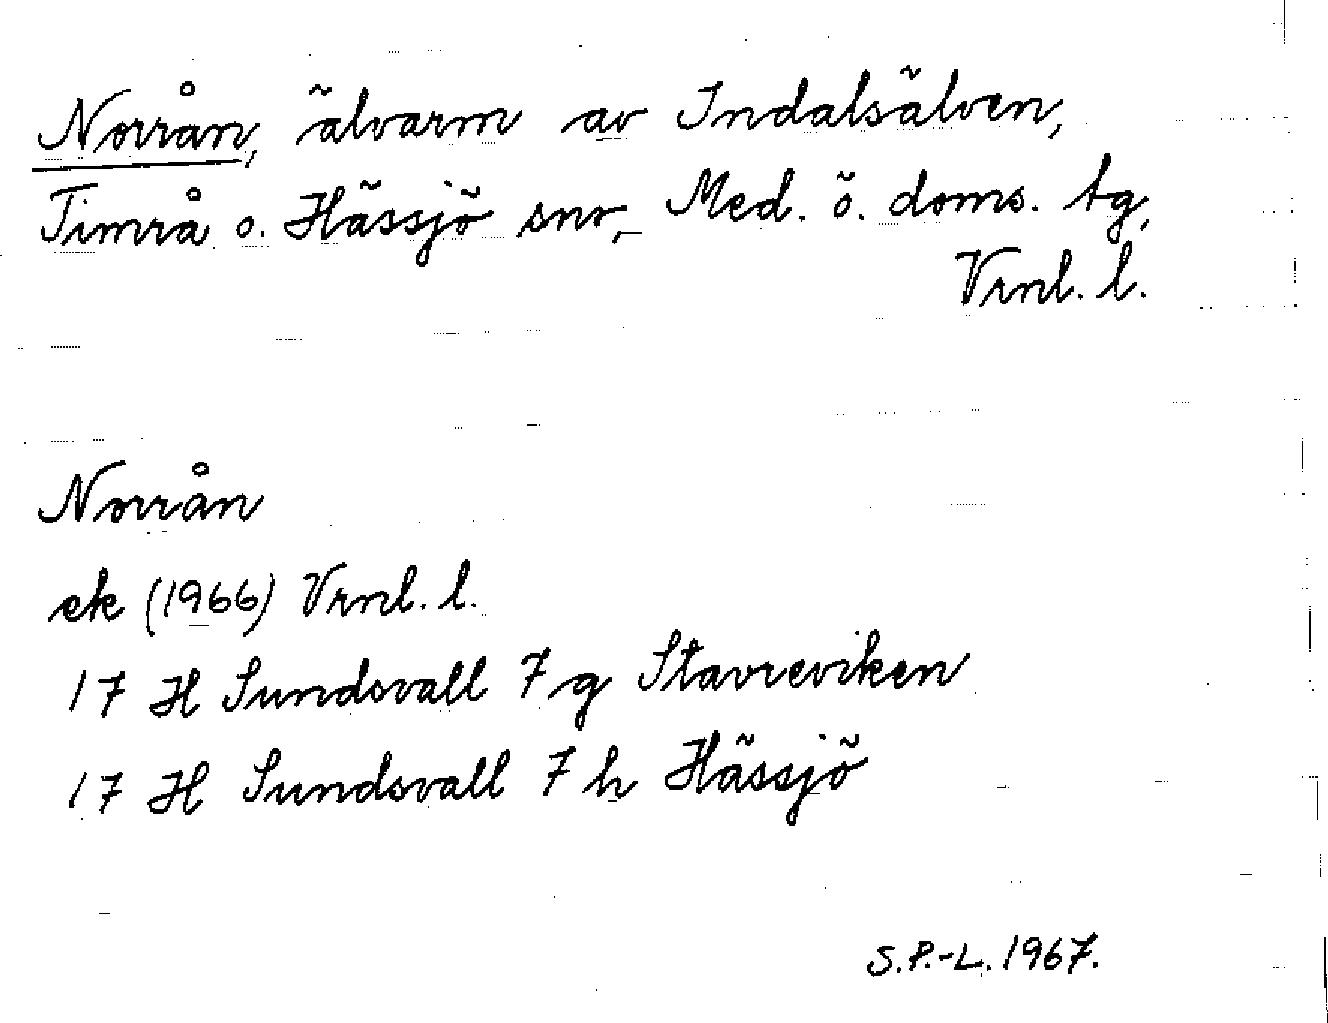 Norrån, älvarm av Indalsälven,
Timrå o. Hässjö snr, Med. ö. doms. tg,
Vrnl. l.
Norrån
ek (1966) Vrnl. l.
17 H Sundsvall 7 g Stavreviken
17 H Sundsvall 7 h Hässjö
S.P.-L. 1967.